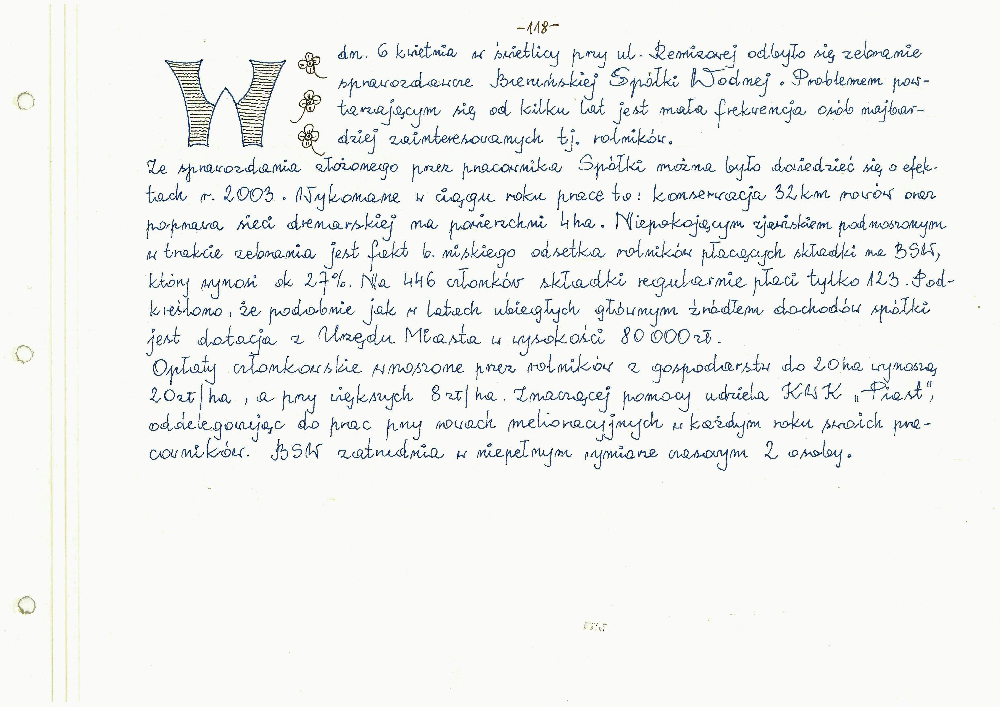 -118-
W dn. 6 kwietnia w świetlicy przy ul. Remizowej odbyło się zebranie
sprawozdawcze Bieruńskiej Spółki Wodnej. Problemem pow-
tarzającym się od kilku lat jest mała frekwencja osób najbar-
dziej zainteresowanych tj. rolników.
Ze sprawozdania złożonego przez pracownika Spółki można było dowiedzieć się o efek-
tach r. 2003. Wykonane w ciągu roku prace to: konserwacja 32 km rowów oraz
poprawa sieci drenarskiej na powierzchni 4 ha. Niepokojącym zjawiskiem podnoszonym
w trakcie zebrania jest fakt b. niskiego odsetka rolników płacących składki na BSW,
który wynosi ok 27%. Na 446 członków składki regularnie płaci tylko 123. Pod-
kreślono, że podobnie jak w latach ubiegłych głównym źródłem dochodów spółki
jest dotacja z Urzędu Miasta w wysokości 80 000 zł.
Opłaty członkowskie wnoszone przez rolników z gospodarstw do 20 ha wynoszą
20 zł/ha, a przy większych 8 zł/ha. Znaczącej pomocy udziela KWK „Piast",
oddelegowując do prac przy rowach melioracyjnych w każdym roku swoich pra-
cowników. BSW zatrudnia w niepełnym wymiarze czasowym 2 osoby.